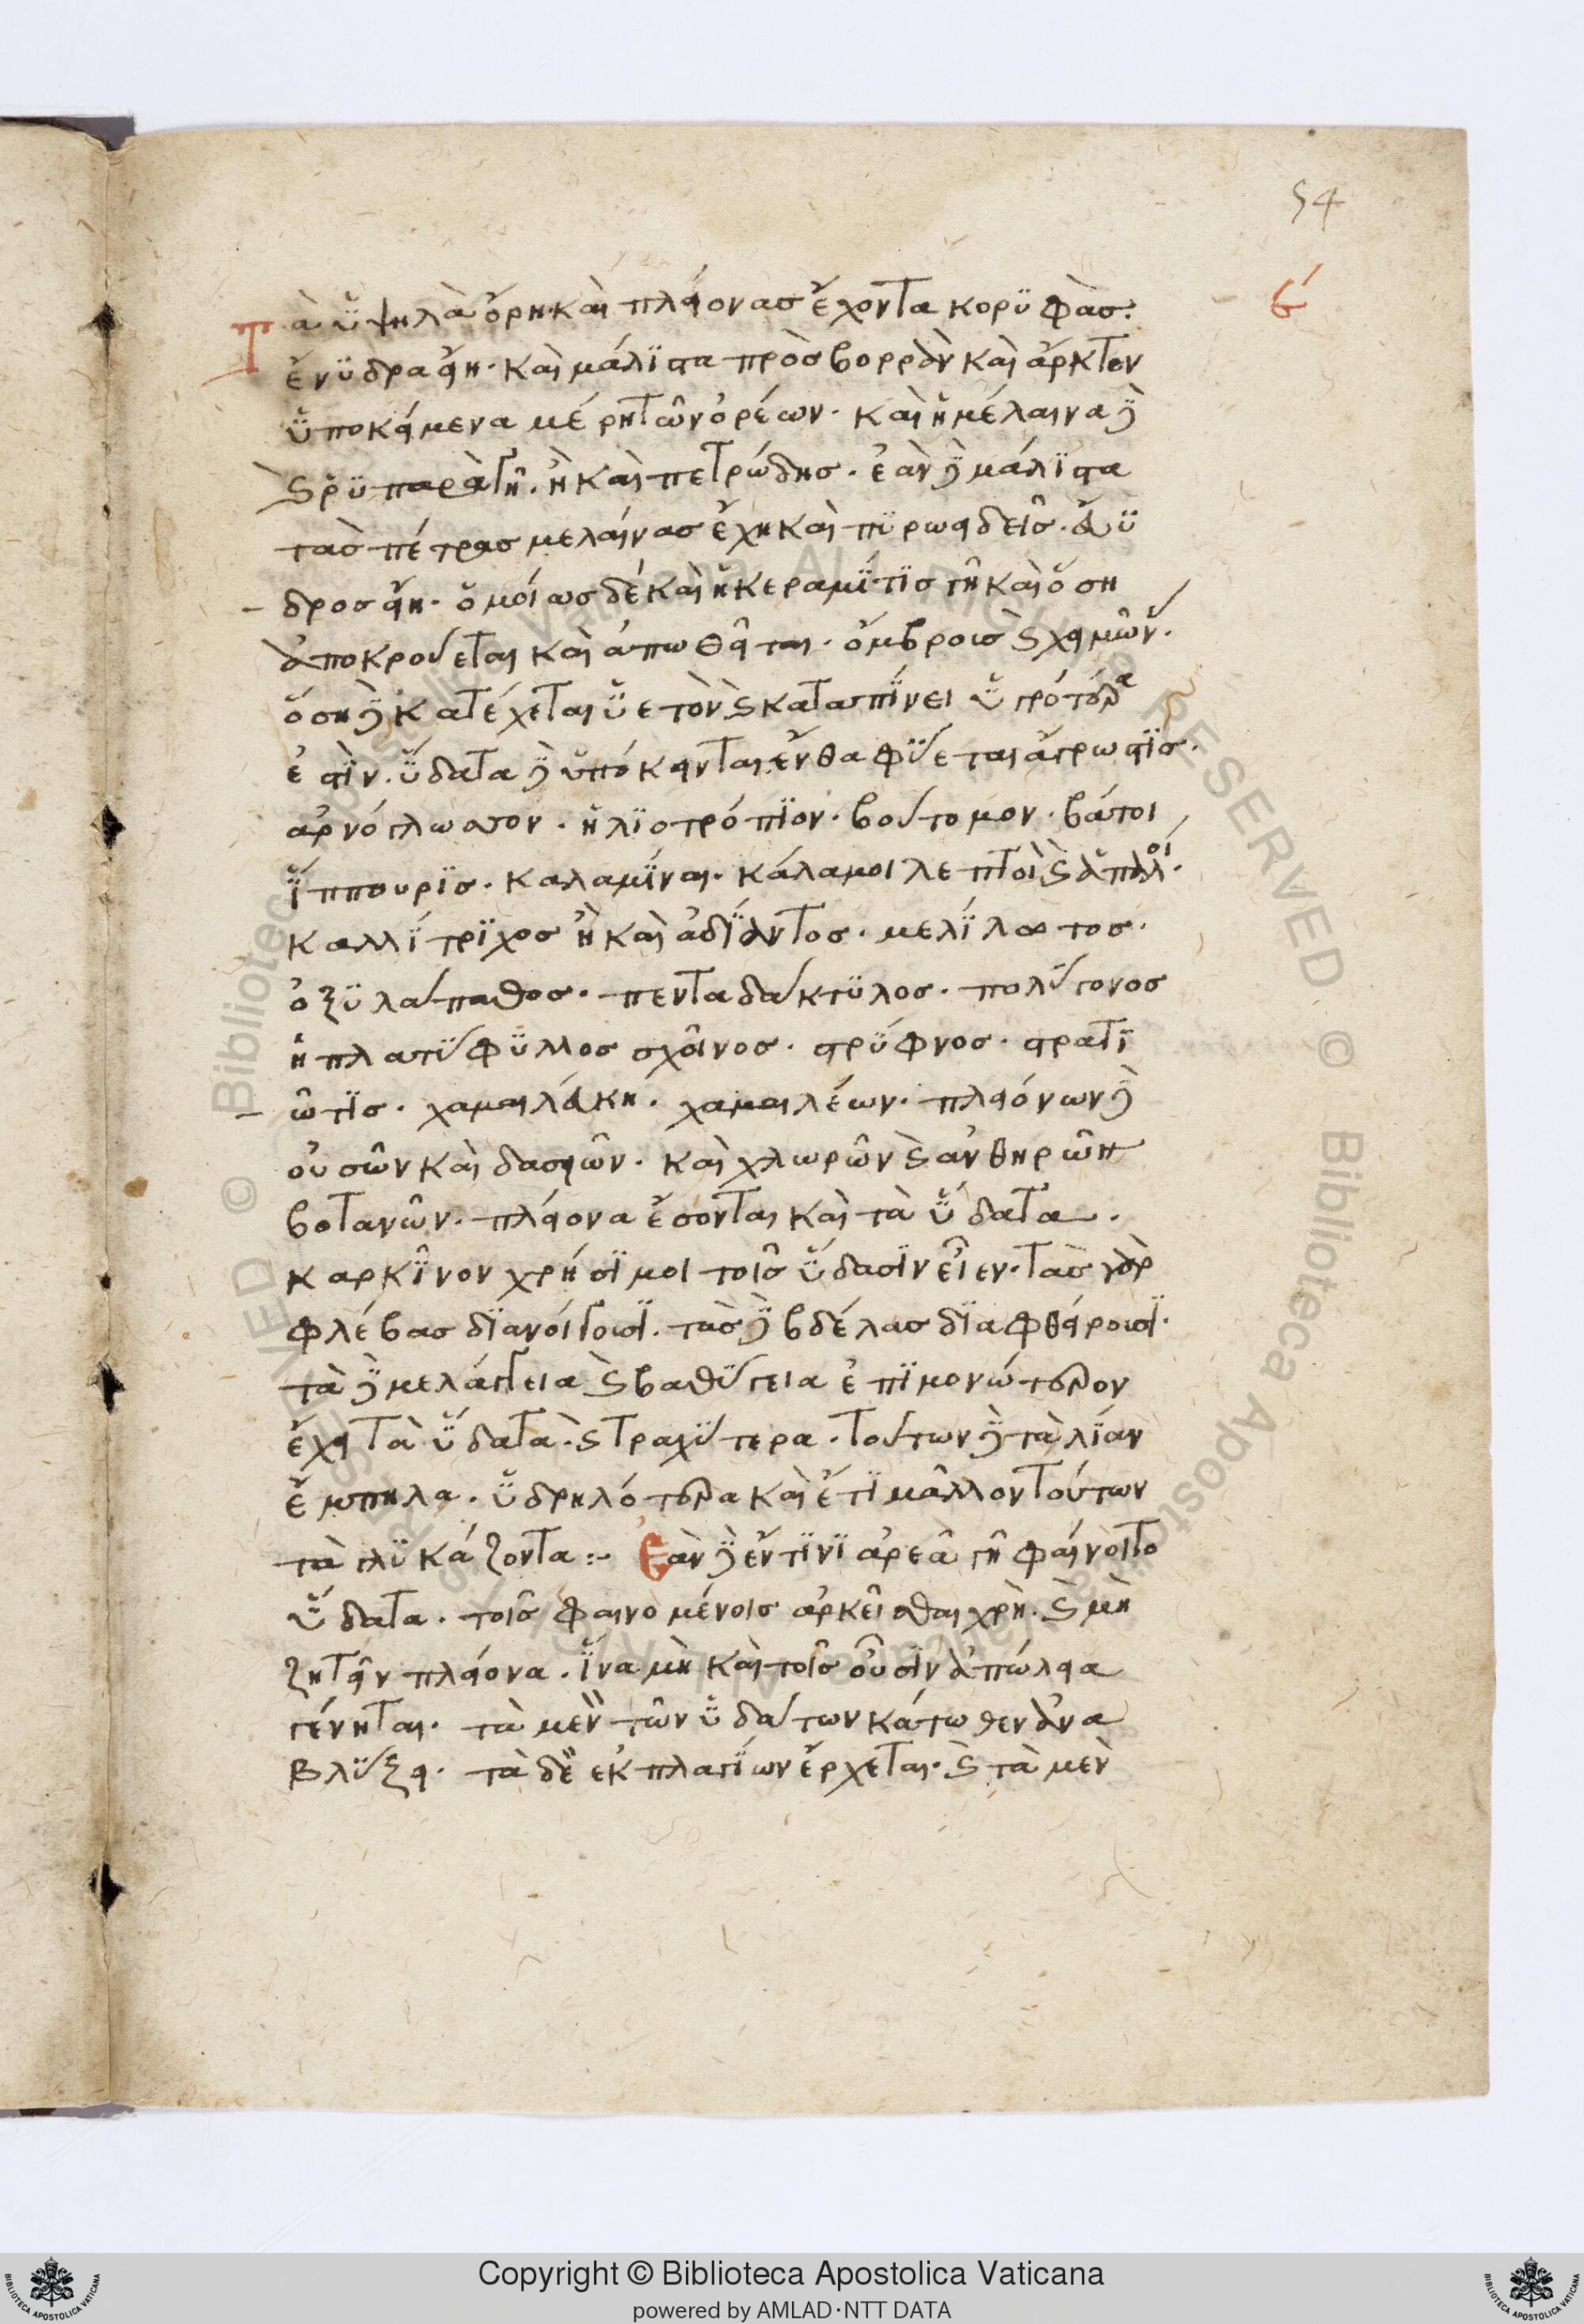 54
β´
Τὰ ὑψηλὰ ὄρη· καὶ πλείονας ἔχοντα κορυφὰς:
ἔνυδρα εἴη· καὶ μάλιστα πρὸς βορρὰν καὶ ἄρκτον
ὑποκείμενα μέρη τῶν ὀρέων· καὶ ἡ μέλαινα δὲ
πέτρας μελαίνας ἔχη καὶ πυρωειδεῖς· ἔνυ
δρος εἴη· ὁμοίως δὲ καὶ ἡ κεραμίτις γῆ καὶ ὅση
ἀποκρούεται καὶ ἀπωθεῖται· ὄμβροις
ὅση δὲ κατέχεται ὑετὸν καὶ καταπίνει ὑγροτέρα
ἐστὶν· ὕδατα δὲ ὑπόκεινται ἔνθα φύεται ἄγρωστις·
ἀρνόγλωσσον· ἡλιοτρόπιον· βούτομον· βάτοι
ἵππουρις· καλαμίναι· κάλαμοι λεπτοὶ καὶ ἁπαλοί·
καλλίτριχος ἢ καὶ ἀδίαντος· μελίλωτος·
ὀξυλάπαθος· πενταδάκτυλος· πολύγονος
ἡ πλατύφυλλος σχοῖνος· στρύφνος· στρατι
ῶτις· χαμαιλεύκη· χαμαιλέων· πλειόνων δὲ
οὐσῶν καὶ δασειῶν· καὶ χλωρῶν καὶ ἀνθηρῶν
βοτανῶν· πλείονα ἔσονται καὶ τὰ ὕδατα·
καρκῖνον χρήσιμοι τοῖς ὕδασιν εἶεν· τὰς γὰρ
φλέβας διανοίγουσι· τὰς δὲ βδέλας διαφθείρουσι·
τὰ δὲ μελάγγεια καὶ βαθύγεια ἐπιμονώτερον
ἔχει τὰ ὕδατα· καὶ τραχύτερα· τούτων δὲ τὰ λίαν
ἔμπηλα· ὑδρηλότερα καὶ ἔτι μᾶλλον τούτων
τὰ γλυκάζοντα :- Ἐὰν δὲ ἔν τινι ἀρεᾶ γῆ φαίνοιτο
ὕδατα· τοῖς φαινομένοις ἀρκεῖσθαι χρὴ· καὶ μὴ
ζητεῖν πλείονα· ἵνα μὴ καὶ τοῖς οὖσιν ἀπώλεια
γένηται· τὰ μὲν τῶν ὑδάτων κάτωθεν ἀνα
βλύζει· τὰ δὲ ἐκ πλαγίων ἔρχεται· καὶ τὰ μὲν
Copyright © Biblioteca Apostolica Vaticana
powered by AMLAD·NTT DATA